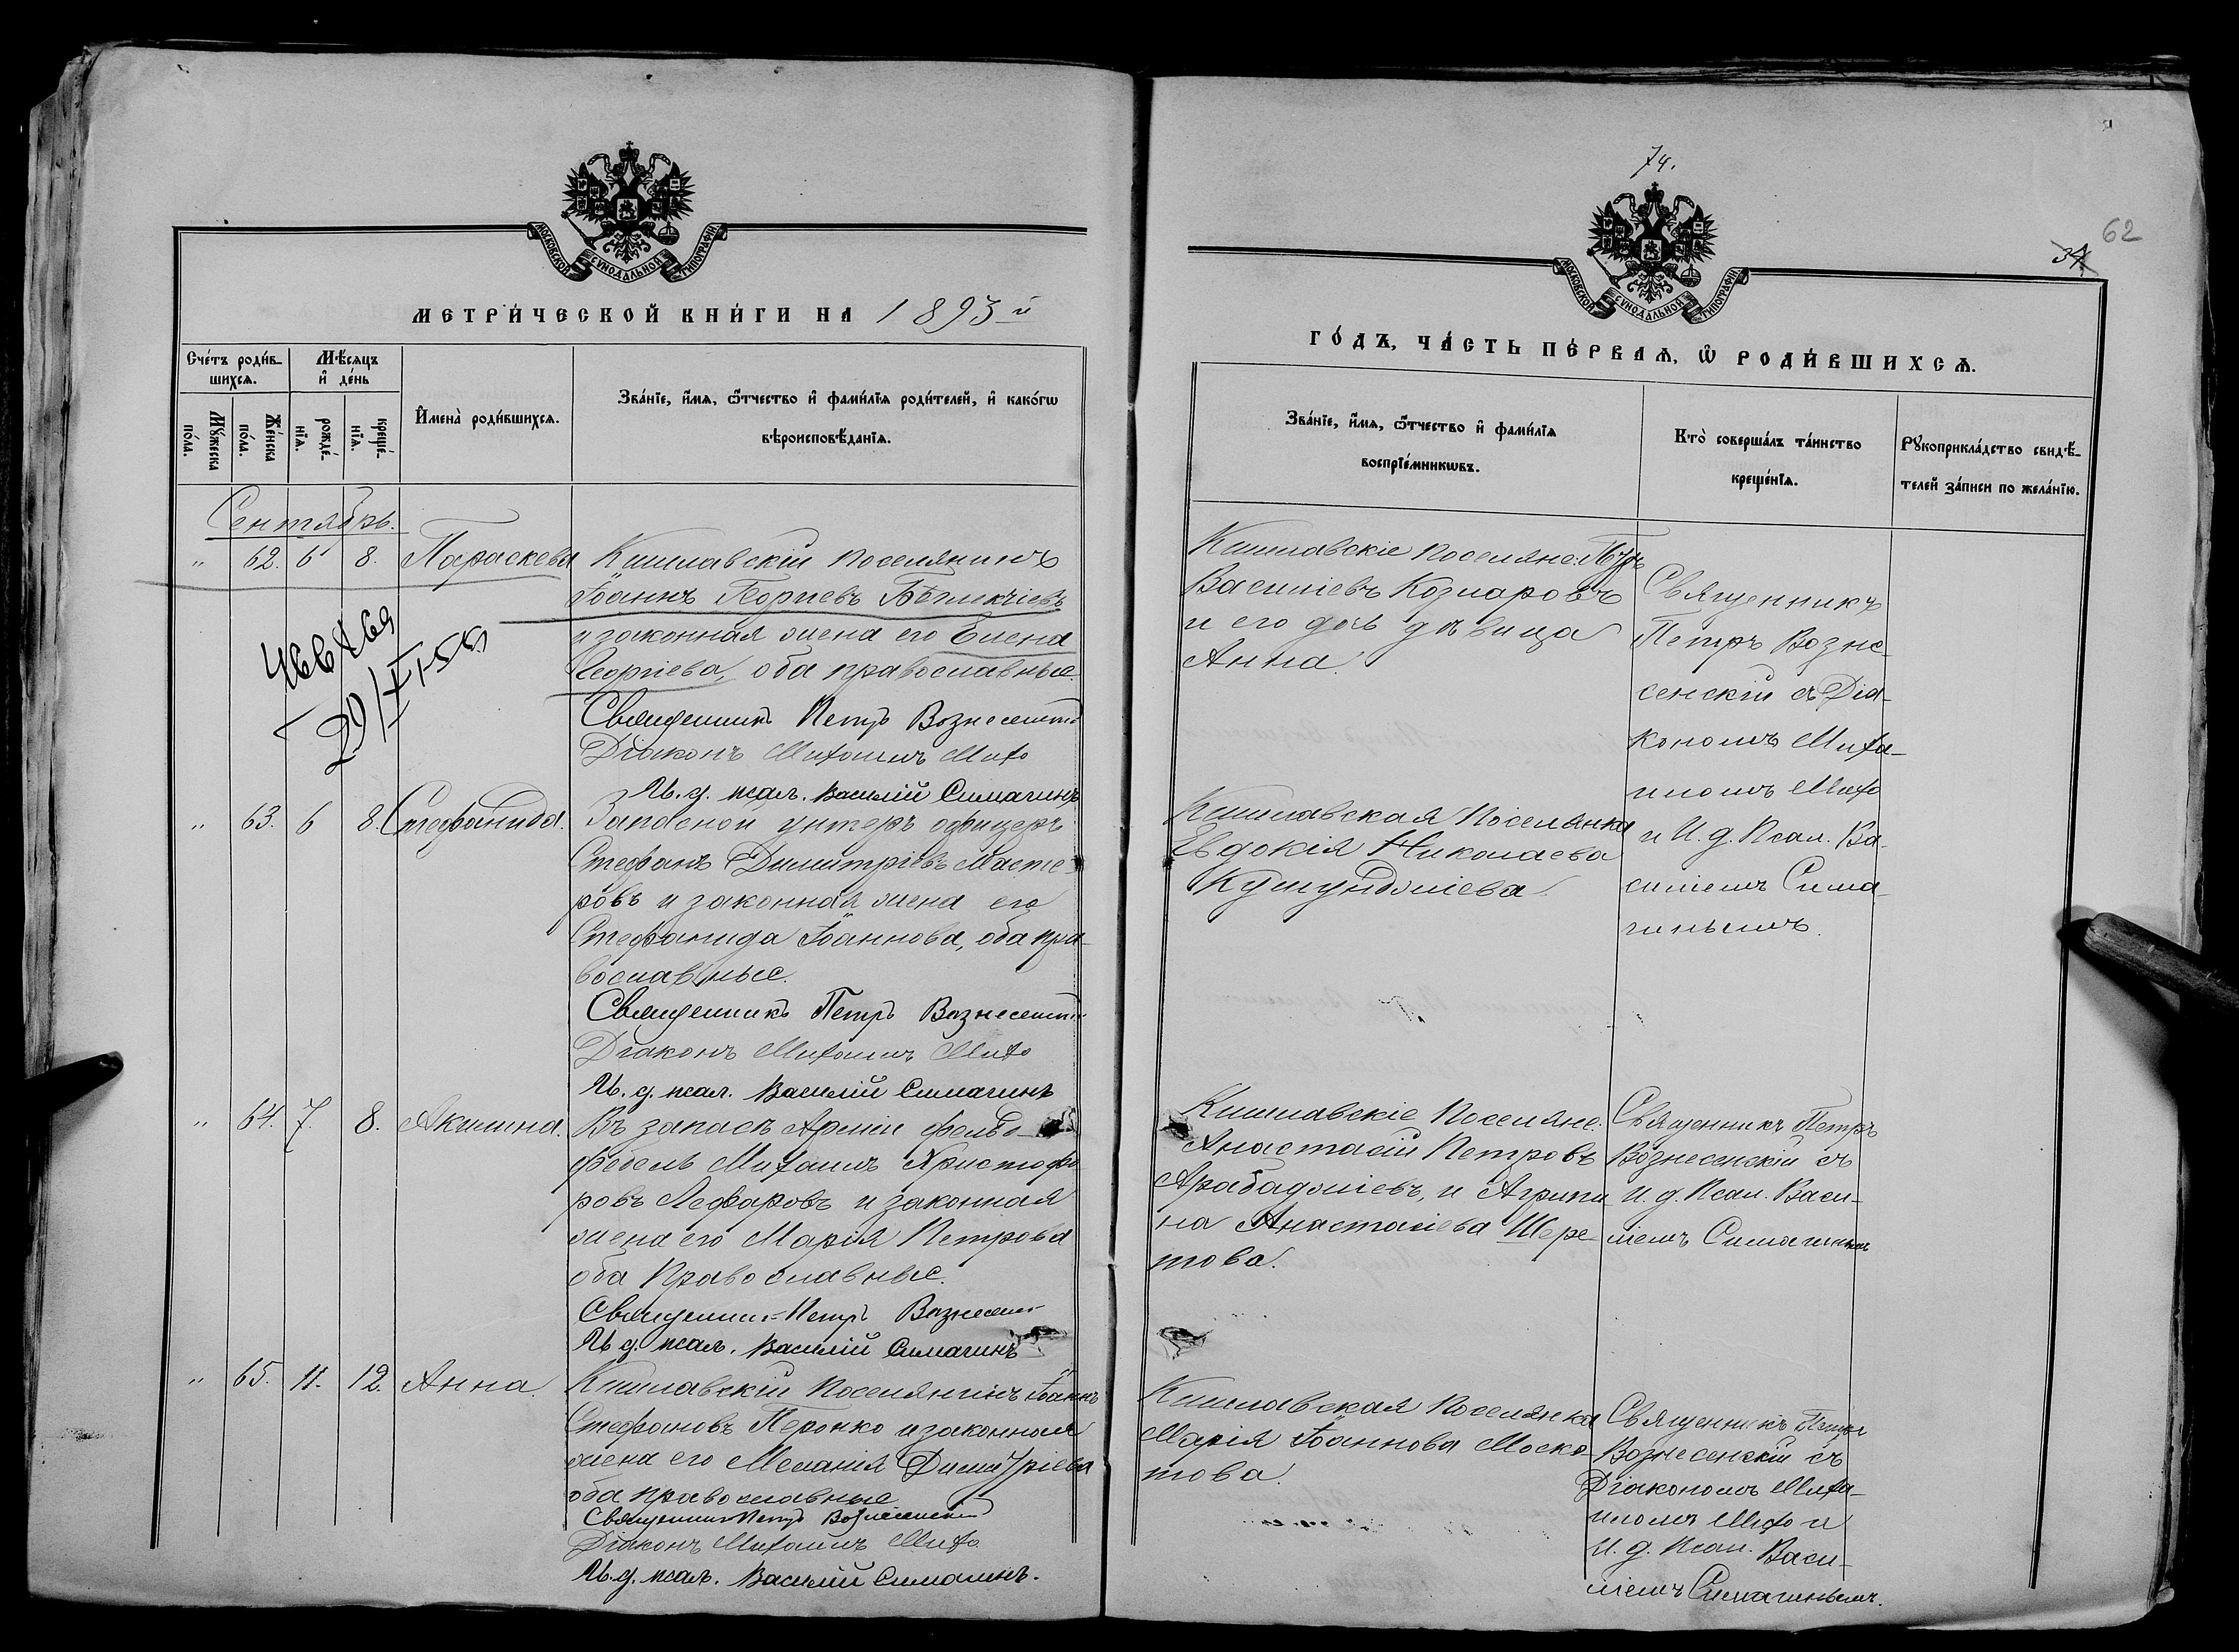 МОСКОВСКОЙ СѴНОДАЛЬНОЙ ТИПОГРАФІИ
МЕТРИ́ЧЕСКОЙ КНИ́ГИ НА 1893 й
Сче́тъ роди́в-
шихсѧ.
Мѣ́сѧцъ
и҆ де́нь
Мꙋ́жеска
по́ла.
Же́нска
по́ла.
рожде́-
нїѧ.
креще́-
нїѧ.
И҆мена̀ роди́вшихсѧ.
Зва́нїе, и҆́мѧ, ѻ҆́тчество и҆ фами́лїѧ роди́телей, и҆ како́гѡ
вѣроисповѣ́данїѧ.
Сентябрь.
" 62. 6 8. Параскева
Кишлавскій поселянинъ
Іоаннъ Георгіевъ
и законная жена его Елена
Георгіева, оба православные.
Священникъ Петръ Вознесенскій
Діаконъ Михаилъ Михо
И. д. псал. Василій Симагинъ
" 63. 6 8. Стефанида.
Запасной унтеръ офицеръ
Стефанъ Димитріевъ Масте-
ровъ и законная жена его
Стефанида Іоаннова, оба пра-
вославные.
Священникъ Петръ Вознесенскій
Діаконъ Михаилъ Михо
И. д. псал. Василій Симагинъ
" 64. 7. 8. Акилина.
Въ запасѣ Арміи фельд-
фебель Михаилъ Христофо
ровъ Лефаровъ и законная
жена его Марія Петрова
оба Православные.
Священникъ Петръ Вознесен
И. д. псал. Василій Симагинъ
" 65. 11. 12. Анна.
Кишлавскій Поселянинъ Іоаннъ
Стефановъ Перонко и законная
жена его Меланія Димитріева
оба православные
Священникъ Петръ Вознесенскій
Діаконъ Михаилъ Михо
И. д. псал. Василій Симагинъ.
74.
62
34
МОСКОВСКОЙ СѴНОДАЛЬНОЙ ТИПОГРАФІИ
ГО́ДЪ, ЧА́СТЬ ПЕ́РВАѦ, Ѡ҆ РОДИ́ВШИХСѦ.
Зва́нїе, и҆́мѧ, ѻ҆́тчество и҆ фами́лїѧ
воспрїе́мникѡвъ.
Кто̀ соверша́лъ та́инство
креще́нїѧ.
Рꙋкоприкла́дство свидѣ́-
телей за́писи по жела́нїю.
Кишлавскіе поселяне: Петръ
Василіевъ Козларовъ
и его дочь дѣвица
Анна.
Священникъ
Петръ Возне-
сенскій съ Діа-
кономъ Миха-
иломъ Михо
и И. д. Псал. Ва-
силіемъ Сима-
гинымъ.
Кишлавская Поселянка
Евдокія Николаева
Куюмджіева
Кишлавскіе Поселяне:
Анастасій Петровъ
Арабаджіевъ, и Агрипи
на Анастасіева Шере-
това.
Священникъ Петръ
Вознесенскій съ
И. д. Псал. Васи-
ліемъ Симагинымъ
Кишлавская Поселянка
Марія Іоаннова Моско-
това.
Священникъ Петръ
Вознесенскій съ
Діакономъ Миха-
иломъ Михо и
И. д. Псал. Васи-
ліемъ Симагинымъ.